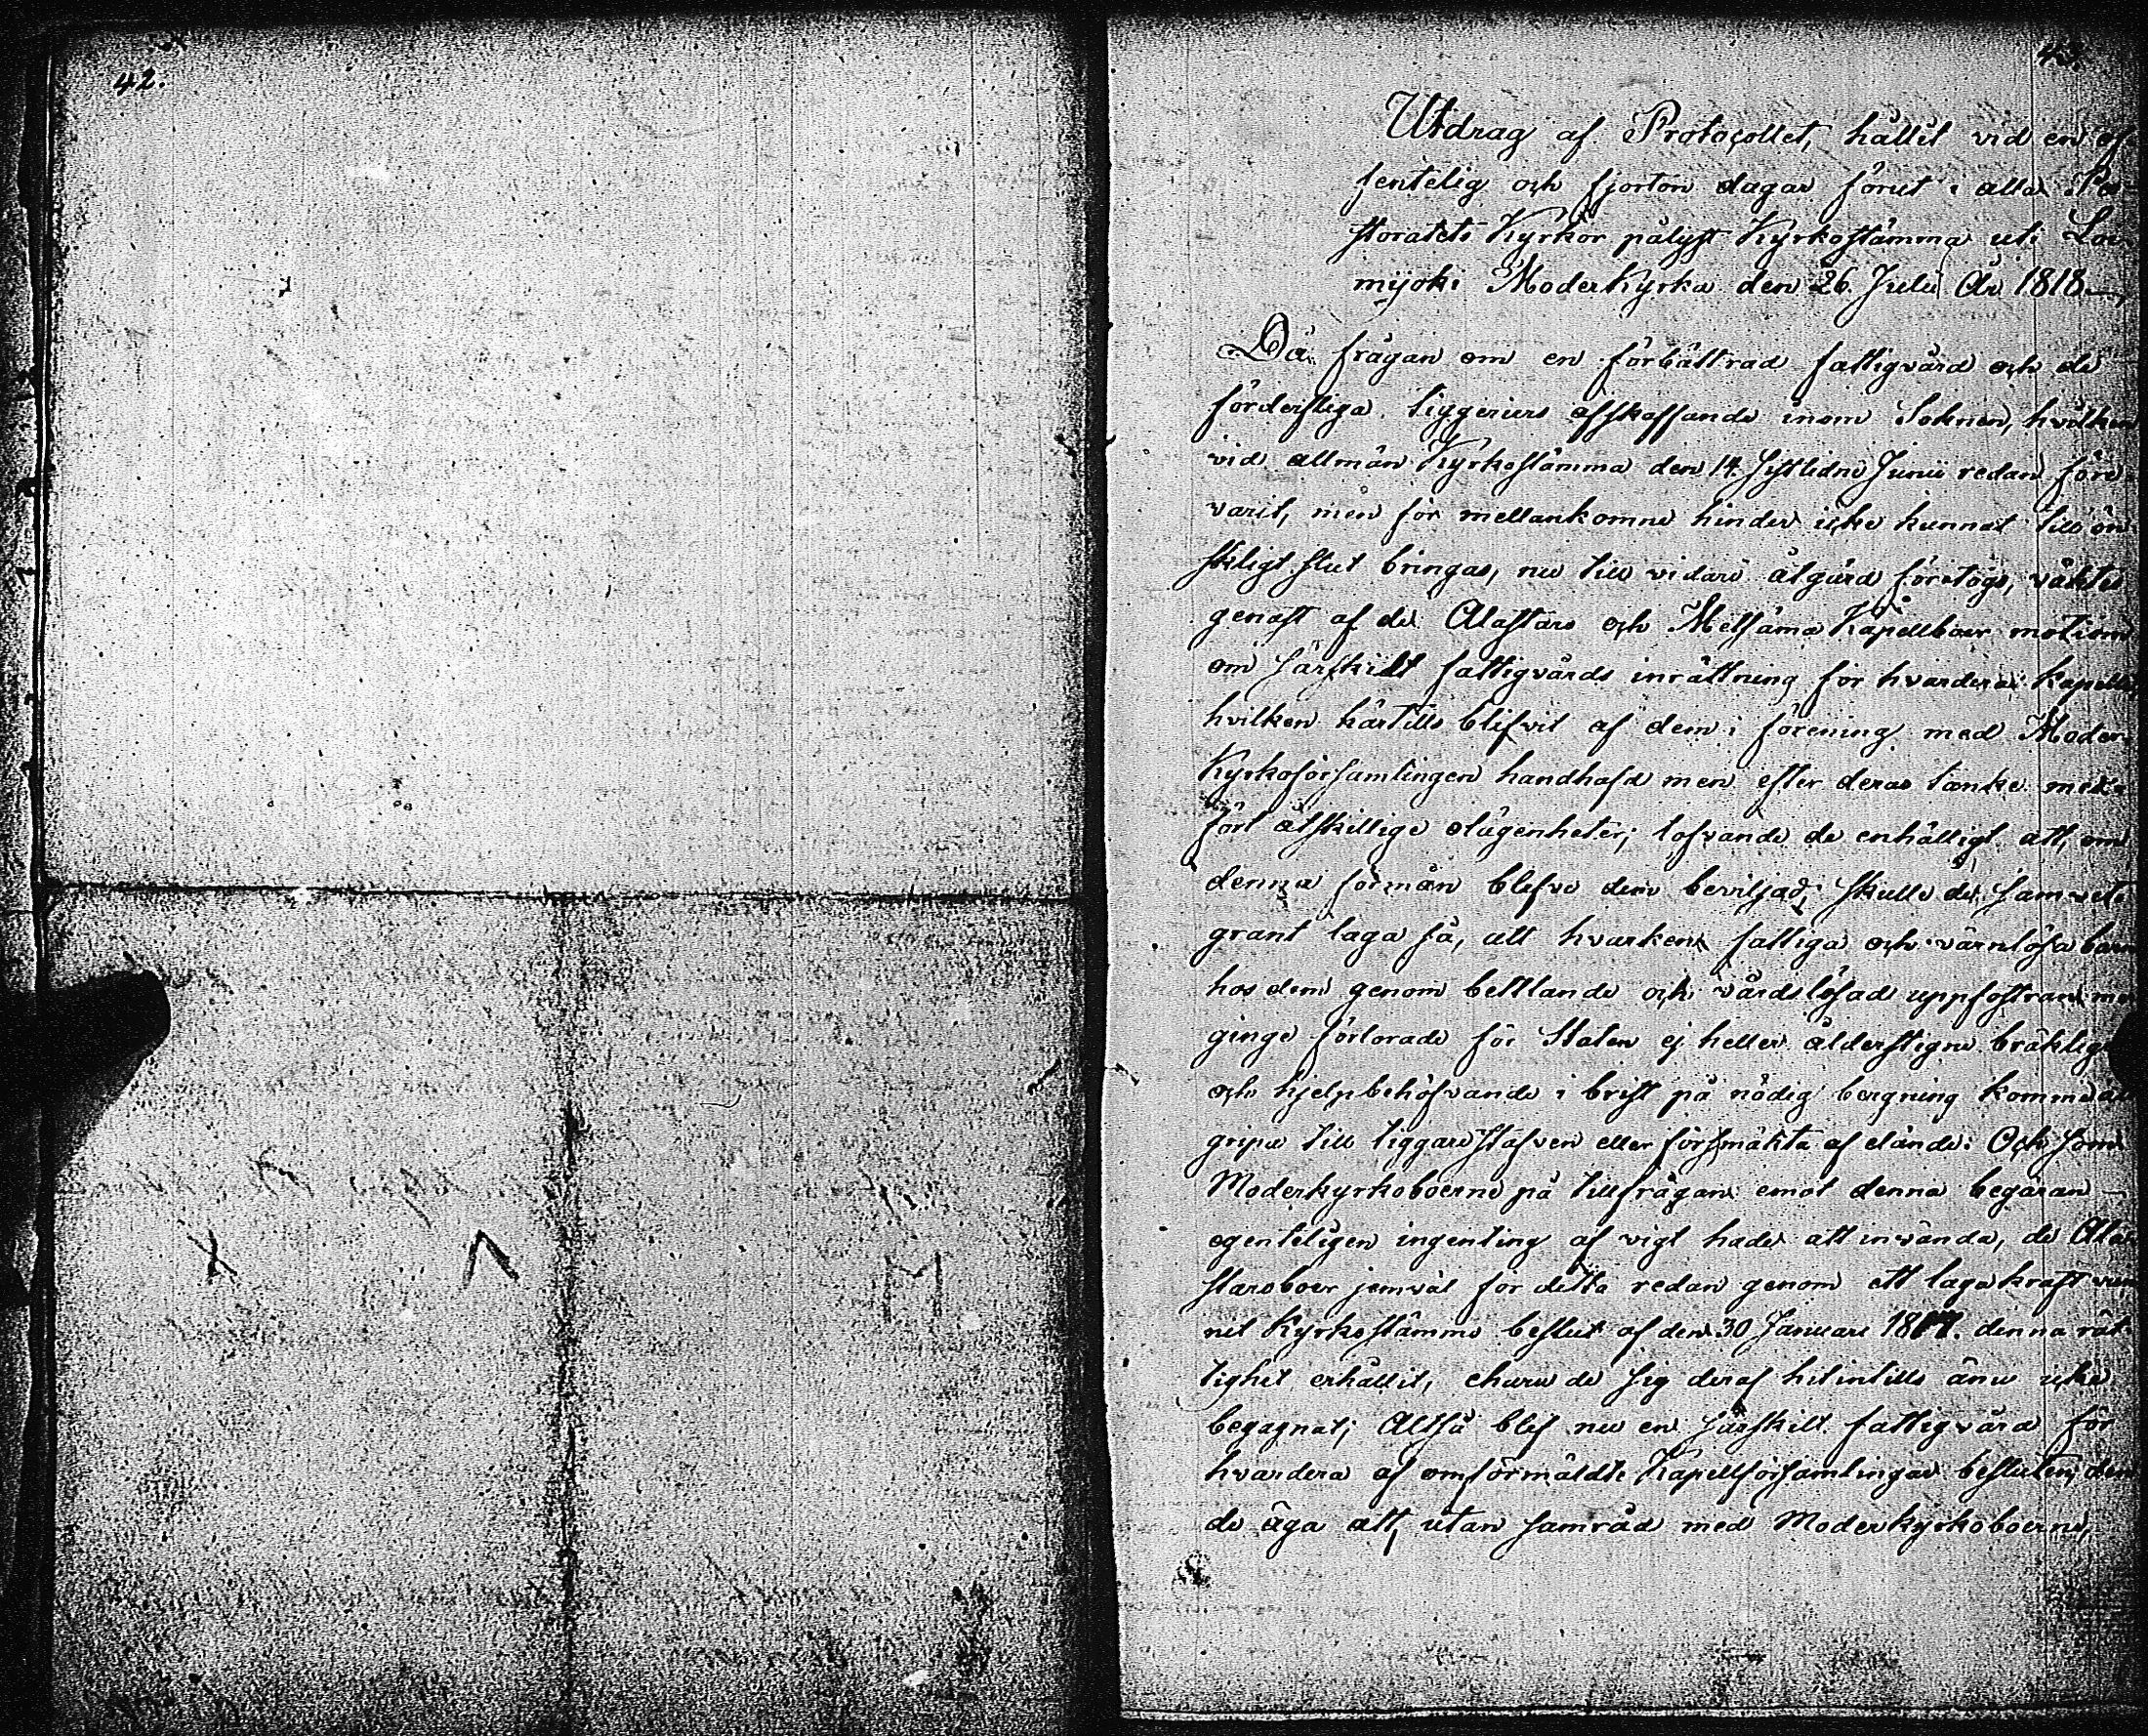 42.
43.
Utdrag af Protocollet, hållit vid en of
fentelig och fjorton dagar förut i alla Pa
storatets Kyrkor pålyst Kyrkostämma uti Loi
mijoki Moderkyrka den 26. Julii År 1818.
Då frågan om en förbättrad fattigvård och de
förderfliga tiggeriers afskaffande inom Soknen, hvilken
vid allmän Kyrkostämma den 14. sistlidne Junii redan före
varit, men för mellankomne hinder icke kunnat till ön
skligt slut bringas, nu till vidare åtgärd företogs, väktes
genast af de Alastaro och Metsämä Kapellboer motion
om särskilt fattigvårds inrättning för hvardera Kapellet
hvilken härtills blifvit af dem i förening med Moder
Kyrkoförsamlingen handhafd men efter deras tanke med
fört åtskillige olägenheter; lofvande de enhälligt att, om
denna förmån blefve dem beviljad, skulle de samvets
grant laga så, att hvarken fattiga och värnlösa barn
hos dem genom bettlande och vårdslösad uppfostran
ginge förlorade för Staten ej heller ålderstigne bräklige
och hjelpbehöfvande i brist på nödig bergning komme att
gripa till tiggare stafven eller försmäkta af elände: Och som
Moderkyrkoboerne på tillfrågan emot denna begäran
egenteligen ingenting af vigt hade att invända, de Ala
staroboer jemväl för detta redan genom ett laga kraft vun
nit Kyrkostämmo beslut af den 30 Januari 1817. denna rät
tighet erhållit, ehuru de sig deraf hitintills ännu icke
begagnat; Altså blef nu en särskilt fattigvård för
hvardera af omförmäldte Kapellförsamlingar besluten, den
de äga att, utan samråd med Moderkyrkoboerne,
M